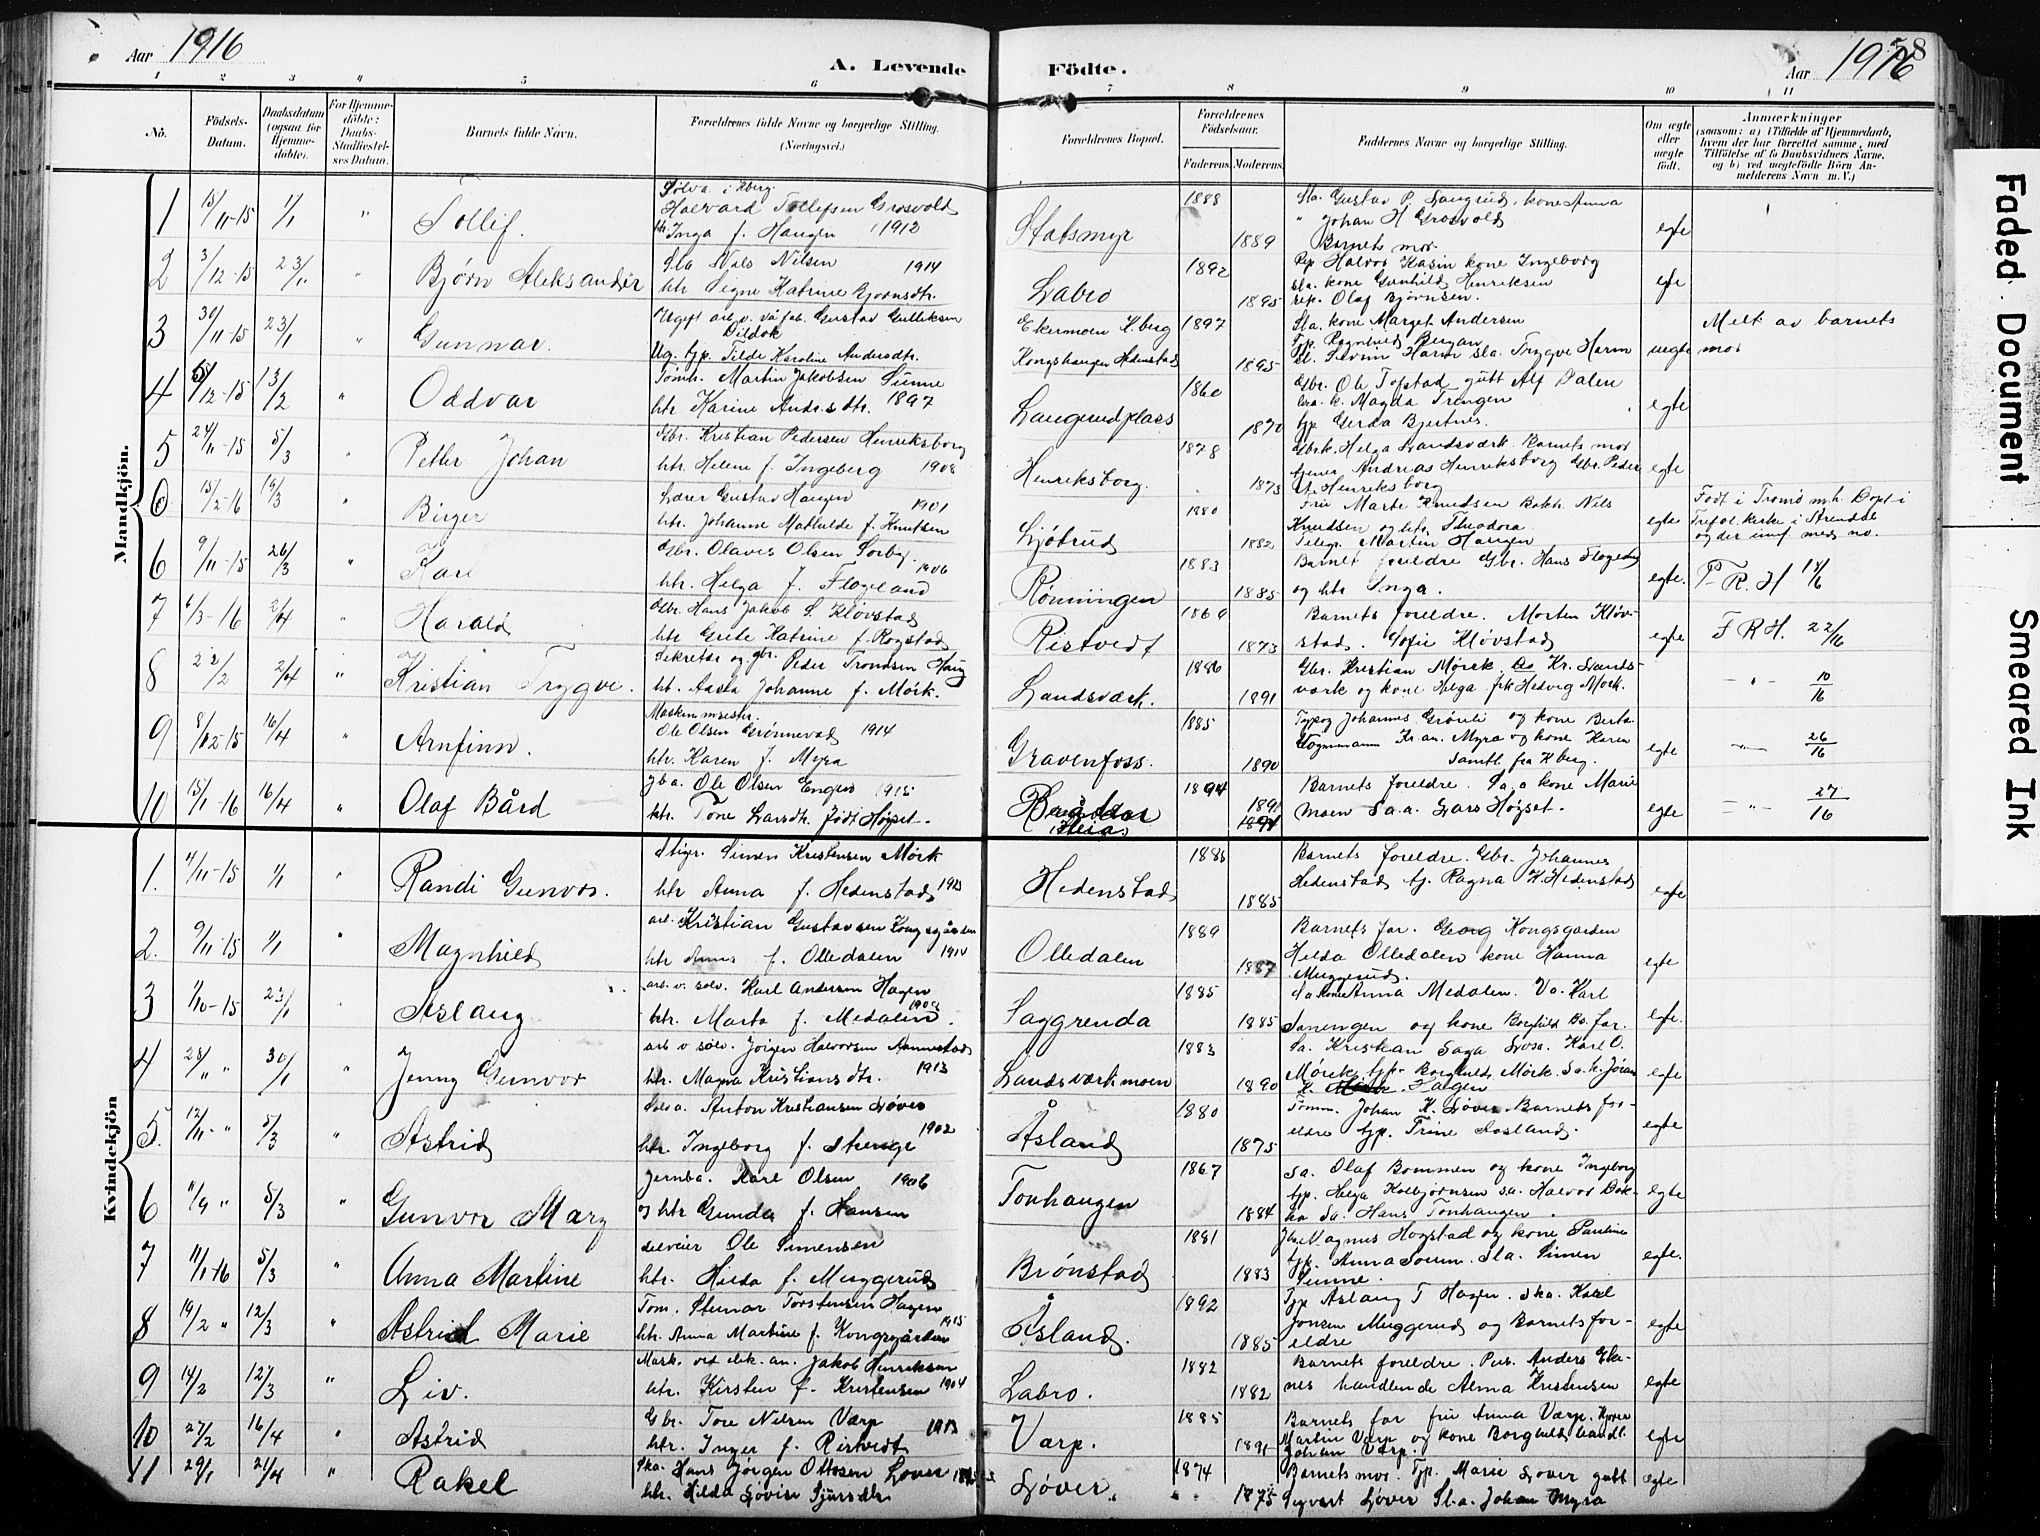 Aar 1916
A. Levende Födte.
Aar 1916
58
1 2 3 4 5 6 7 8 9 10 11
No.
Födsels-Datum.
Daabsdatum (ogsaa for Hjemme-döbte).
For Hjemme-döbte: Daabs-Stadfæstel-ses Datum.
Barnets fulde Navn.
Forældrenes fulde Navne og borgerlige Stilling. (Næringsvei.)
Forældrenes Bopæl.
Forældrenes Födselsaar.
Faderens. Moderens.
Faddernes Navne og borgerlige Stilling.
Om ægte eller uægte födt.
Anmærkninger
(saasom: a) i Tilfælde af Hjemmedaab, hvem der har forrettet samme, med Tilföielse af to Daabsvidners Navne, og b) ved uægtefödte Börn An-melderens Navn m. V.)
Mandkjön.
1 15/11-15 1/1 " Tollif.
Sølva. i Kberg.
Halvard Tollefsen Grosvold
htr. Inga f. Haugen 1912
Statsmyr 1888 1889
Sla. Gustav P. Langrud, kone Anna
" Johan H Grosvold
Barnets mor. egte
2 3/12-15 23/1 " Bjørn Aleksander
Sla Nils Nilsen 1914
htr Signe Katrine Bjørnsdtr.
Labro 1892 1895
Rep Halvor Kasin kone Ingeborg
sla. kone Gunhild Henriksen
rep. Olaf Bjørnsen. egte
3 30/11-15 23/1 " Gunnar.
Ugift arb. v. våfab. Gustav Gulliksen
Dildok
Ug. tjp. Tilde Karoline Andersdtr.
Ekermoen Kberg 1897
Kongshaugen Hedenstad 1895
Sla. kone Marget Andersen
Tjp. Ragnhild Bergan
Sl. Severin Harm sla. Trygve Harm uegte
Melt av barnets mor
4 5/12-15 13/2 " Oddvar
Tømh. Martin Jakobsen Sunne
htr Karine Andr.sdtr. 1897
Langrudplass 1860 1870
Gbr. Ole Tofstad gutt Alf Dalen
Magda Trengen
tjp Gerda Bjertnes. egte
5 24/11-15 5/3 " Petter Johan
Gbr. Kristian Pedersen Henriksborg
htr. Helene f. Ingeberg 1908
Henriksborg. 1878 1873
Gbrk. Helga Landsværk. Barnets mor
Andreas Henriksborg Gbr. Peder
A. Henriksborg egte
6 15/2-16 19/3 " Birger
Lærer Gustav Haugen 1901
htr. Johanne Mathilde f. Knutsen
Ljøtrud 1880 1882
Fru Marte Knudsen Bokh. Nils
Knudsen og hfr. Theodora.
Telegr. Martin Haugen egte
Født i Tromø mh. Døpt i
Trefol. kirke i Arendal
og der innf. med no.
6 9/11-15 26/3 " Karl
Gbr. Olaves Olsen Sorby. 1906
htr. Helga f. Flogeland
Rønningen 1883 1885
Barnet foreldre Gbr. Hans Flogeland
og htr Inga. egte.
F. R. H 18/6
7 6/3-16 2/04 Harald
Gbr. Hans Jakob S. Kløvstad
htr Grete Katrine f. Rogstad
Ristvedt 1869 1873
Barnets foreldre. Morten Kløv-
stad. Sofie Kløvstad egte
F R H. 22/16
8 22/2 2/04 " Kristian Trygve.
Sekretær og gbr. Peder Trondsen Haug
ht. Aasta Johanne f. Mørk.
Landsværk. 1886 1891
Gbr. Kristian Mørck. Kr. Lands-
værk og kone Helga frk Hedvig Mørk.
- " - 10/16
9 8/12-15 16/04 " Arnfinn.
Maskinmester.
Ole Olsen Grønnevad 1914
htr. Karen f. Myra
Gravenfoss. 1885 1890
Typog Johannes Grønli og kone Berta
Vognmann Kr. an. Myra og kone Karen
samtl. fra Kberg. egte
- " - 26/16
10 15/1-16 16/04 " Olaf Bård
Jba. Ole Olsen Enger 1915
htr. Tone Larsdtr. født Høiset.
(Heia) 1894 1891
Barnets foreldre. Sa.a kone Marie
moen Sa.a. Lars Høiset. egte
- " - 27/16
Kvindekjön
1. 4/11-15 1/1 " Randi Gunvor.
Stiger. Simen Kristensen Mørk
htr Anna f. Hedenstad 1913
Hedenstad 1886 1885
Barnets foreldre. Gbr. Johannes
Hedenstad tj. Ragna H. Hedenstad egte
2. 9/11-15 1/1 " Magnhild
arb. Kristian Gustavsen Kongsgården
htr Anna f. Olledalen 1914
Olledalen 1889 1887
Barnets far. Georg Kongsgarden
Hilda Olledalen kone Hanna
Muggerud. egte
3 1/10-15 23/1 " Aslaug
arb. v. sølv. Karl Andersen Hagen 1908
htr. Marta f. Medalen.
Saggrenda 1885 1885
Sa kone Anna Medalen. Va. Karl
og kone Borghild Bs. far. egte.
4 28/" " 30/1 " Jenny Gunvor
arb v sølv. Jørgen Halvorsen Aannestad
htr. Magna Kristiansdtr. 1913
Landsværkmoen 1883 1890
Sa. Kristian Saga Karl O.
Mörck tjp. Borghild Mørk. Sa. h. Jöran
H. Halgen egte
5. 12/11 " 5/3 " Astrid
Sølva. Anton Kristiansen Løver
htr. Ingeborg f. Stenge 1902
Åsland 1880 1875
Tømm. Johan K. Løver Barnets for-
eldre tjp. Trine Aasland. egte
6 11/9 " 5/3 " Gunvor Mary
Jernba. Karl Olsen 1906
og htr Gunda f. Hansen
Tonhaugen 1867 1884
Sa. Olaf Bommen og kone Ingeborg
tjp. Helga Kolbjørnsen s.a. Halvor Dok-
ka Sa. Hans Tonhaugen. egte
7 11/1-16 5/3 " Anna Martine
selveier Ole Simensen
htr. Hilda f. Muggerud
Brønstad 1881 1883
Magnus Hogstad og kone Pauline
tjp. Anna Soeum. Sla. Simen
Sunne. egte.
8 19/2 " 12/3 " Astrid Marie
Tom. Steinar Torstensen Hagen 1915
htr. Anna Martine f. Kongsgården
Åsland. 1892 1885
Tjp Aslaug T Hagen. ska. Karl
Jonsen Muggerud og Barnets for-
eldre egte
9 14/2 12/3 " Liv.
Mask. ved elek. an. Jakob Henriksen
htr. Kirsten f. Kristensen 1904
Labro. 1882 1882
Barnets foreldre. Anders Eka-
nes handlende Alma Kristensen egte
10 27/2 16/4 " Astrid
Gbr. Tore Nilsen Værp 1913
htr. Inger f. Ristvedt
Værp. 1885 1891
Barnets far fru Anna Værp.
Martin Værp og kone Borghild handl.
Johan Værp. egte
11 29/1 21/04 " Rakel
Ska. Hans Jörgen Ottosen Lover
htr. Hilda Lovise Sjursdtr
Løver. 1874 1875
Barnets mor. Tjp. Marie Lover gutt
Sigvart Løver Sl.a. Johan Myra egte
Faded Document
Smeared Ink